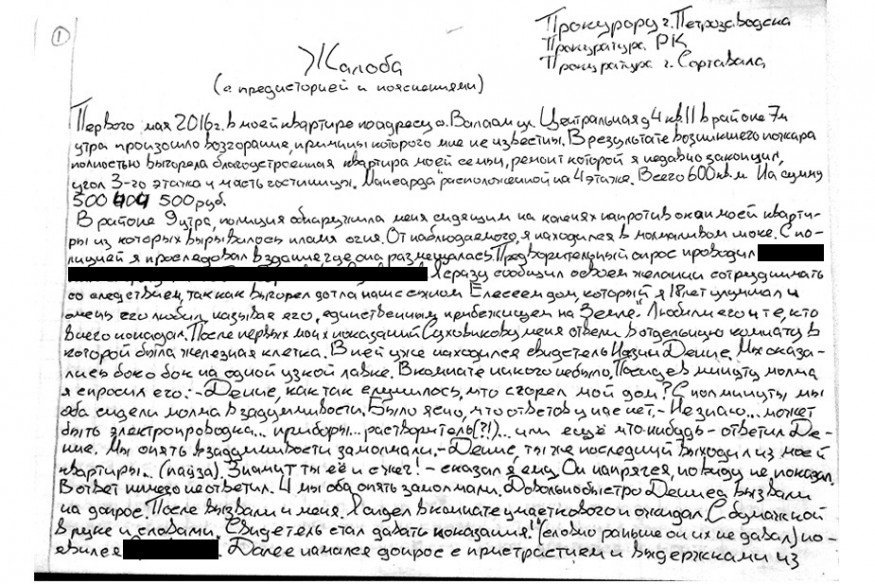 ①
Прокурору г. Петрозаводска
Прокуратура РК
Прокуратура г. Сортавала
Жалоба
(с предисторией и пояснениями)
Первого мая 2016г. в моей квартире по адресу о. Валаам ул Центральная д 4 кв 11 в районе 7и
утра произошло возгорание, причины которого мне не известны. В результате возникшего пожара
полностью выгорела благоустроенная квартира моей семьи, ремонт которой я недавно закончил,
угол 3-го этажа и часть гостиницы. Мансарда" расположенной на 4 этаже. Всего 600кв.м На сумму
500 500 руб.
В районе 9 утра, полиция обнаружила меня сидящим на коленях напротив окна моей кварти-
ры из которых вырывалось пламя огня. От наблюдаемого, я находился в молчаливом шоке. С по-
лицией я проследовал в здание где она размещалась. Предворительный опрос проводил
Я сразу сообщил о своем желании сотрудничать
со следствием, так как выгорел дотла наш с сыном Елесеем дом, который я 18 лет улучшал и
очень его любил, называя его, единственным прибежищем на Земле". Любили его и те, кто
в него попадал. После первых моих показаний Суховикову меня отвели в отдельную комнату в
которой была железная клетка. В ней уже находился свидетель Изин Денис. Мы оказа-
лись бок о бок на одной узкой лавке. В комнате никого не было. Посидев минуту молча
я спросил его: - Денис, как так случилось, что сгорел мой дом? С пол минуты, мы
оба сидели молча в задумчивости. Было ясно, что ответов у нас нет. - Не знаю... может
быть электропроводка... приборы... растворитель(?!)... или ещё что-нибудь - ответил Де-
нис. Мы опять в задумчивости замолчали. - Денис, ты же последний выходил из моей
квартиры... (пауза). Значит ты её и сжег! - сказал я ему. Он напрягся, но виду не показал.
В ответ ничего не ответил. И мы оба опять замолчали. Довольно быстро Дениса вызвали
на допрос. После вызвали и меня. Я сидел в комнате участкового и ожидал. С бумажкой
в руке и словами: Свидетель стал давать показания!" (словно раньше он их не давал) по-
явился . Далее начался допрос с пристрастием и выдержками из